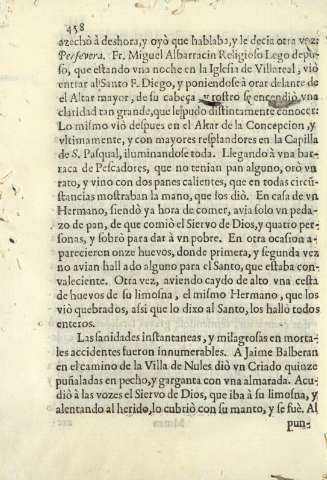 458
azechò à deshora, y oyò que hablaba, y le decia otra vez:
Persevera. Fr. Miguel Albarracin Religioso Lego depu-
so, que estando vna noche en la Iglesia de Villareal, viò
entrar al Santo F. Diego, y poniendose à orar delante de
el Altar mayor, de su cabeça y rostro se encendiò vna
claridad tan grande, que le pudo distintamente conocer.
Lo mismo viò despues en el Altar de la Concepcion, y
vltimamente, y con mayores resplandores en la Capilla
de S. Pasqual, iluminandose toda. Llegando à vna bar-
raca de Pescadores, que no tenian pan alguno, orò vn
rato, y vino con dos panes calientes, que en todas circũ-
stancias mostraban la mano, que los diò. En casa de vn
Hermano, siendo ya hora de comer, avia solo vn peda-
zo de pan, de que comiò el Siervo de Dios, y quatro per-
sonas, y sobrò para dar à vn pobre. En otra ocasion a-
parecieron onze huevos, donde primera, y segunda vez
no avian hallado alguno para el Santo, que estaba con-
valeciente. Otra vez, aviendo caydo de alto vna cesta
de huevos de su limosna, el mismo Hermano, que los
viò quebrados, assi que lo dixo al Santo, los hallò todos
enteros.
Las sanidades instantaneas, y milagrosas en morta-
les accidentes fueron innumerables. A Jaime Balberan
en el camino de la Villa de Nules diò vn Criado quinze
puñaladas en pecho, y garganta con vna almarada. Acu-
diò à las vozes el Siervo de Dios, que iba à su limosna, y
alentando al herido, lo cubriò con su manto, y se fuè. Al
pun-